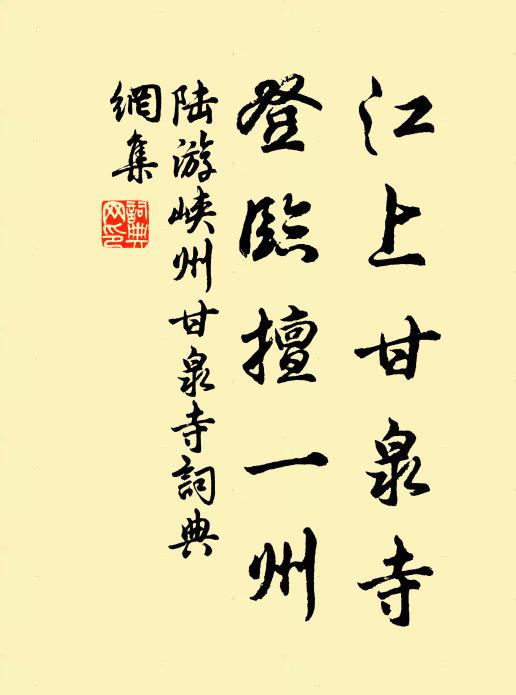 江上甘泉寺
登臨擅一州
陆游峡州甘泉寺詞典
網集
詞典
网印